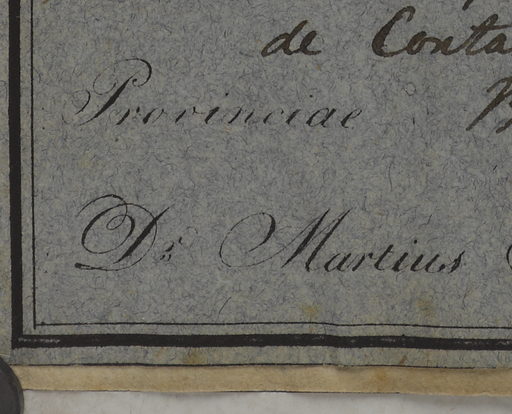 de Conta
Provinciae
Dr. Martius